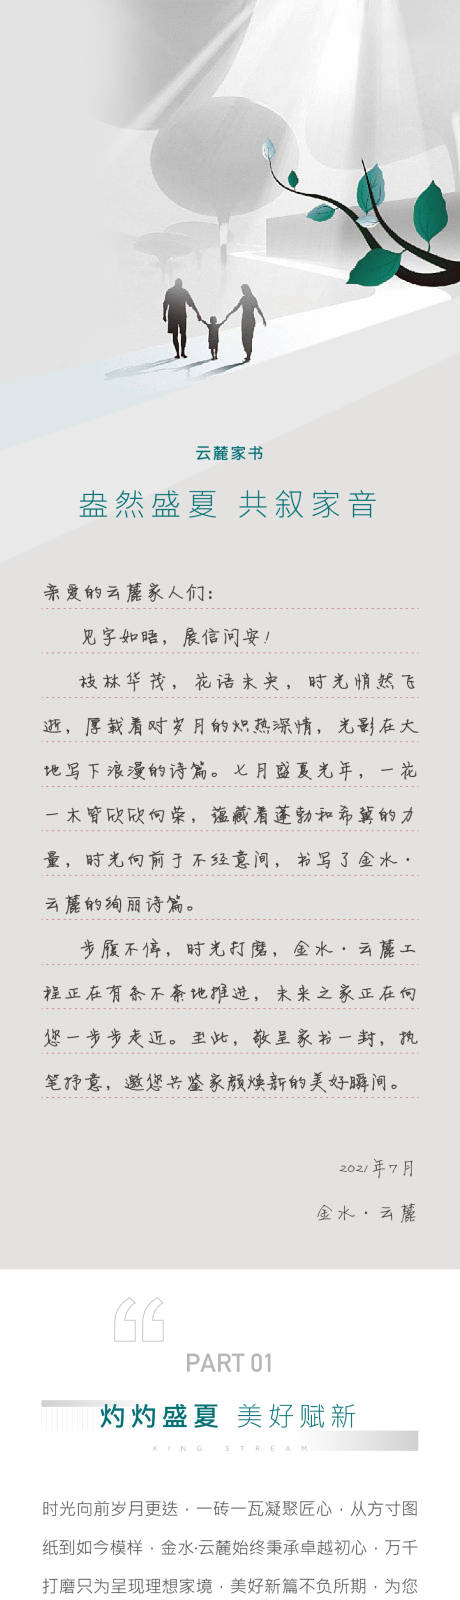 云麓家书
盎然盛夏 共叙家音
亲爱的云麓家人们：
见字如晤，展信问安！
枝林华茂，花语未央，时光悄然飞
逝，厚载着对岁月的炽热深情，光影在大
地写下浪漫的诗篇。七月盛夏光年，一花
一木皆欣欣向荣，蕴藏着蓬勃和希冀的力
量，时光向前于不经意间，书写了金水·
云麓的绚丽诗篇。
步履不停，时光打磨，金水·云麓工
程正在有条不紊地推进，未来之家正在向
您一步步走近。至此，敬呈家书一封，执
笔抒意，邀您共鉴家颜焕新的美好瞬间。
2021年7月
金水·云麓
PART 01
灼灼盛夏 美好赋新
KING STREAM
时光向前岁月更迭，一砖一瓦凝聚匠心，从方寸图
纸到如今模样，金水·云麓始终秉承卓越初心，万千
打磨只为呈现理想家境，美好新篇不负所期，为您